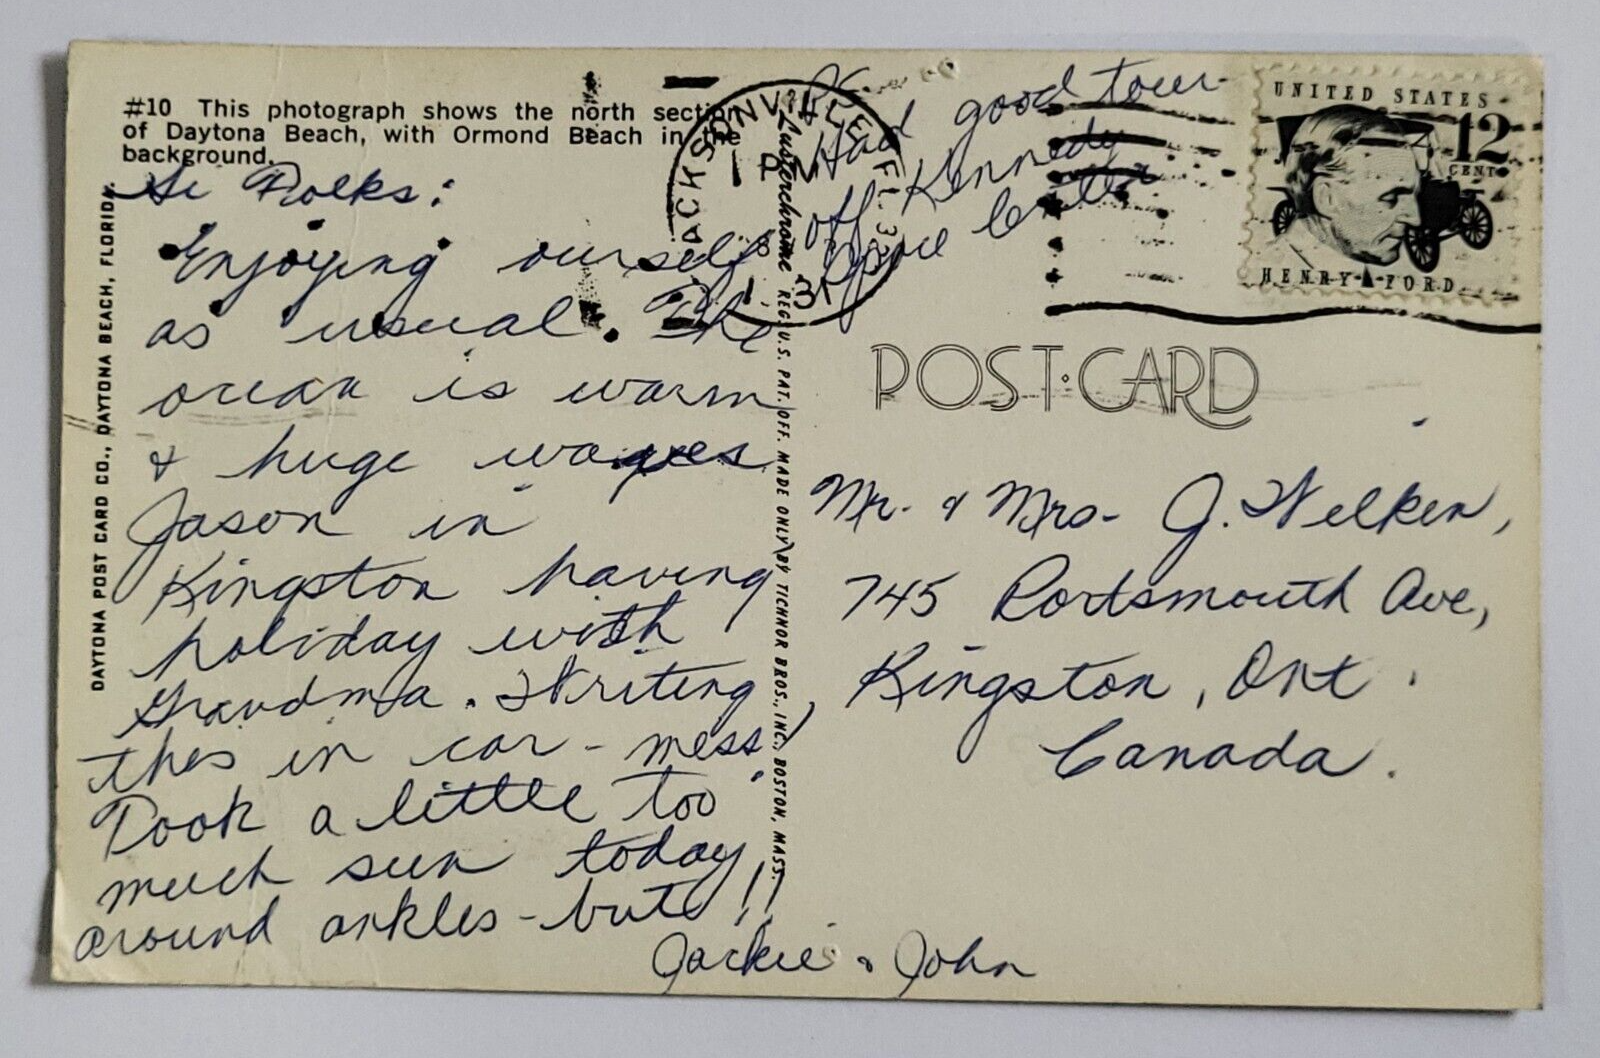 #10 This photograph shows the north section
of Daytona Beach, with Ormond Beach in the
background.
DAYTONA POST CARD CO., DAYTONA BEACH, FLORIDA.
Hi Folks:
Enjoying ourself
as usual. The
ocean is warm
& huge waves.
Jason in
Kingston having
holiday with
Grandma. Writing
this in car - mess!
Took a little too
much sun today
around ankles - but!!
Jackie & John
Had good tour
of Kennedy
Space
Lusterchrome REG. U.S. PAT. OFF. MADE ONLY BY TICHNOR BROS., INC., BOSTON, MASS.
JACKSONVILLE FL
PM
UNITED STATES
12
CENTS
HENRY FORD
POST CARD
Mr. & Mrs. J. Wilken,
745 Portsmouth Ave,
Kingston, Ont.
Canada.